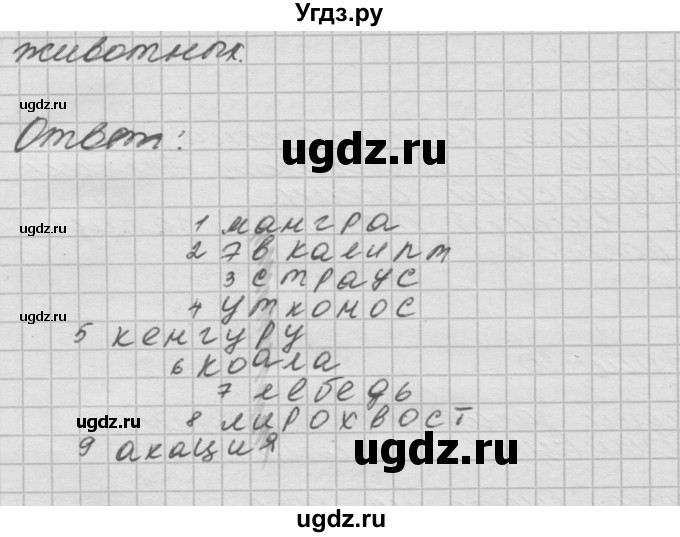 Угдз.ру
животных.
ugdz.ru
Ответ:
ugdz.ru
ugdz.ru
1 мангра
2 7вкалипт
3 страус
4 утконос
ugdz.ru
5 кенгуру
6 коала
7 лебедь
8 лирохвост
ugdz.ru
9 акация
ugdz.ru
ugdz.ru